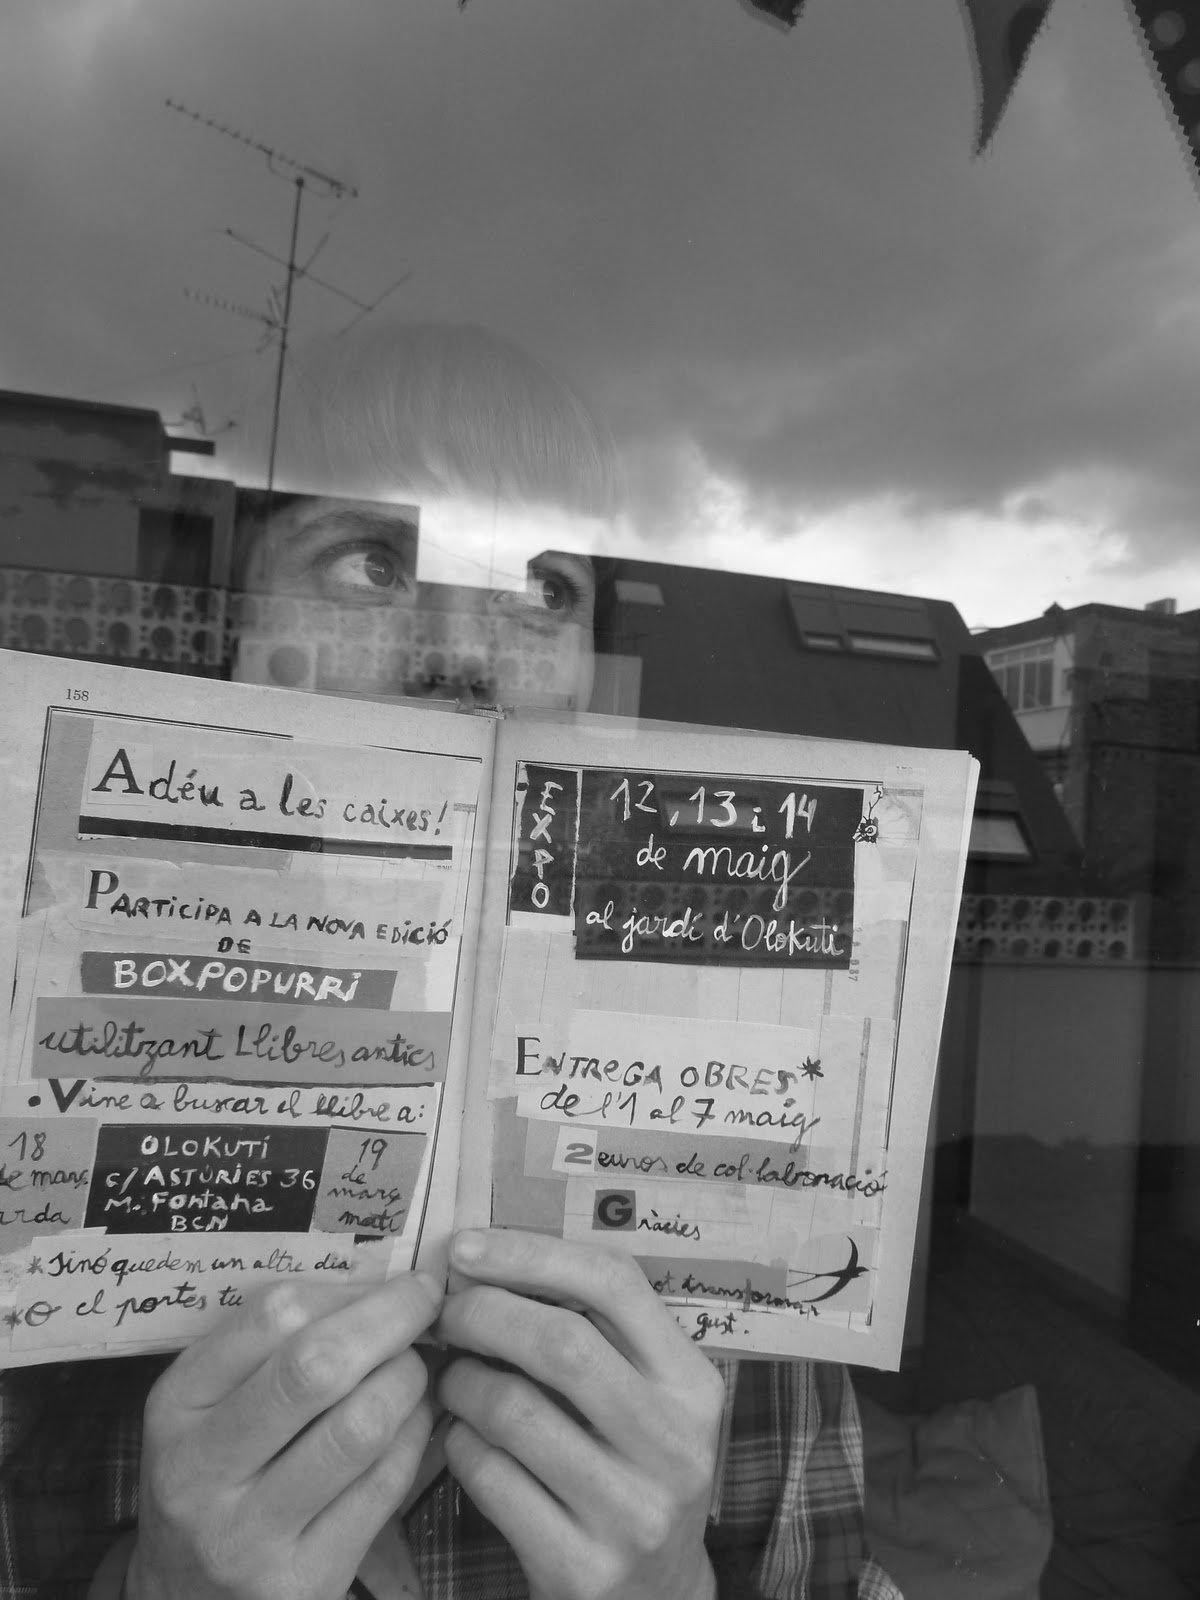 158
Adéu a les caixes!
PARTICIPA A LA NOVA EDICIÓ
DE
BOXPOPURRI
utilitzant Llibres antics
• Vine a buscar el llibre a:
18
de març
OLOKUTI
c/ ASTÚRIES 36
M. Fontana
BCN
19
de
març
matí
*Sinó quedem un altre dia
*O el portes tu
EXPO
12, 13 i 14
de maig
al jardí d'Olokuti
ENTREGA OBRES*
de l'1 al 7 maig
2 euros de col·laboració
Gràcies
transformar
gust.